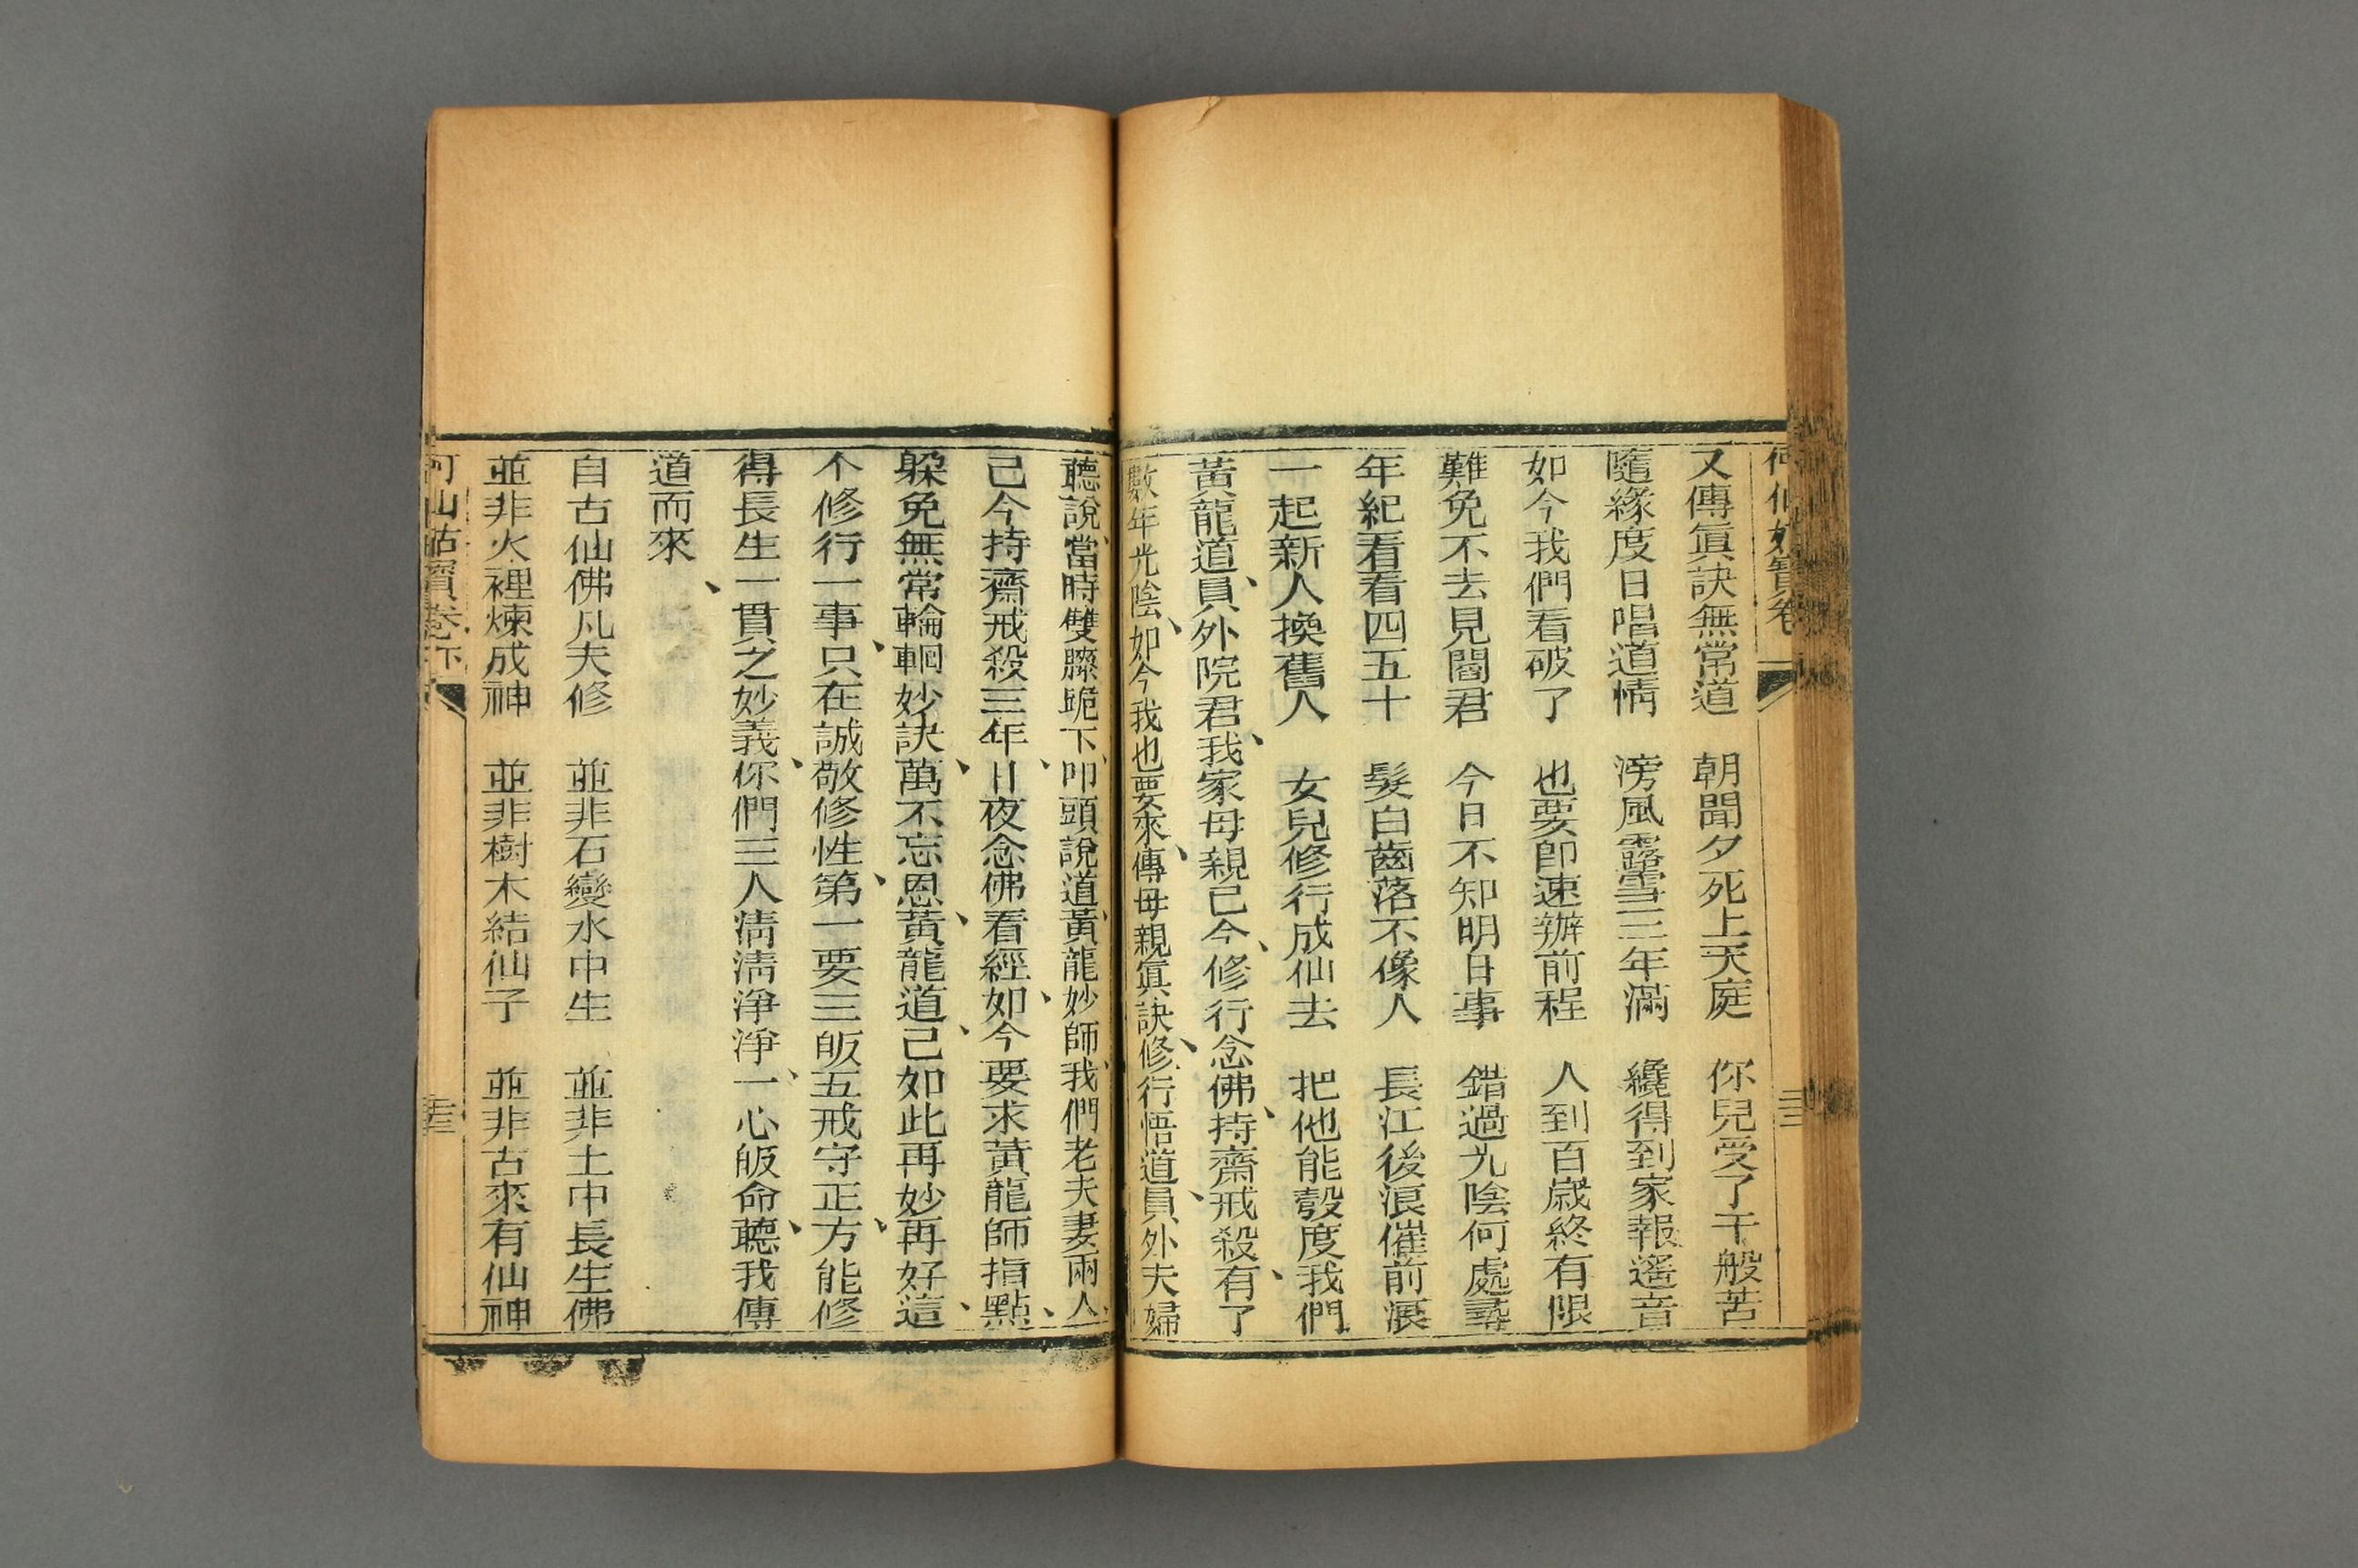 何仙姑寶卷
又傳眞訣無常道　朝聞夕死上天庭　你兒受了千般苦
隨緣度日唱道情　滂風露雪三年滿　纔得到家報遙音
如今我們看破了　也要卽速辦前程　人到百歲終有限
難免不去見閻君　今日不知明日事　錯過光陰何處尋
年紀看看四五十　髮白齒落不像人　長江後浪催前浪
一起新人換舊人　女兒修行成仙去　把他能彀度我們
黃龍道、員外院君、我家母親已今、修行念佛、持齋戒殺、有了
數年光陰、如今我也要來、傳母親眞訣、修行悟道、員外夫婦
聽說、當時雙膝跪下、叩頭說道、黃龍妙師、我們老夫妻兩人、
己今持齋戒殺三年、日夜念佛看經、如今要求黃龍師指點、
躲免無常輪輞妙訣、萬不忘恩、黃龍道、己如此再妙再好、這
个修行一事、只在誠敬修性、第一要三皈五戒守正、方能修
得長生一貫之妙義、你們三人淸淸淨淨、一心皈命、聽我傳
道而來、
自古仙佛凡夫修　並非石變水中生　並非土中長生佛
並非火裡煉成神　並非樹木結仙子　並非古來有仙神
何仙姑寶卷下